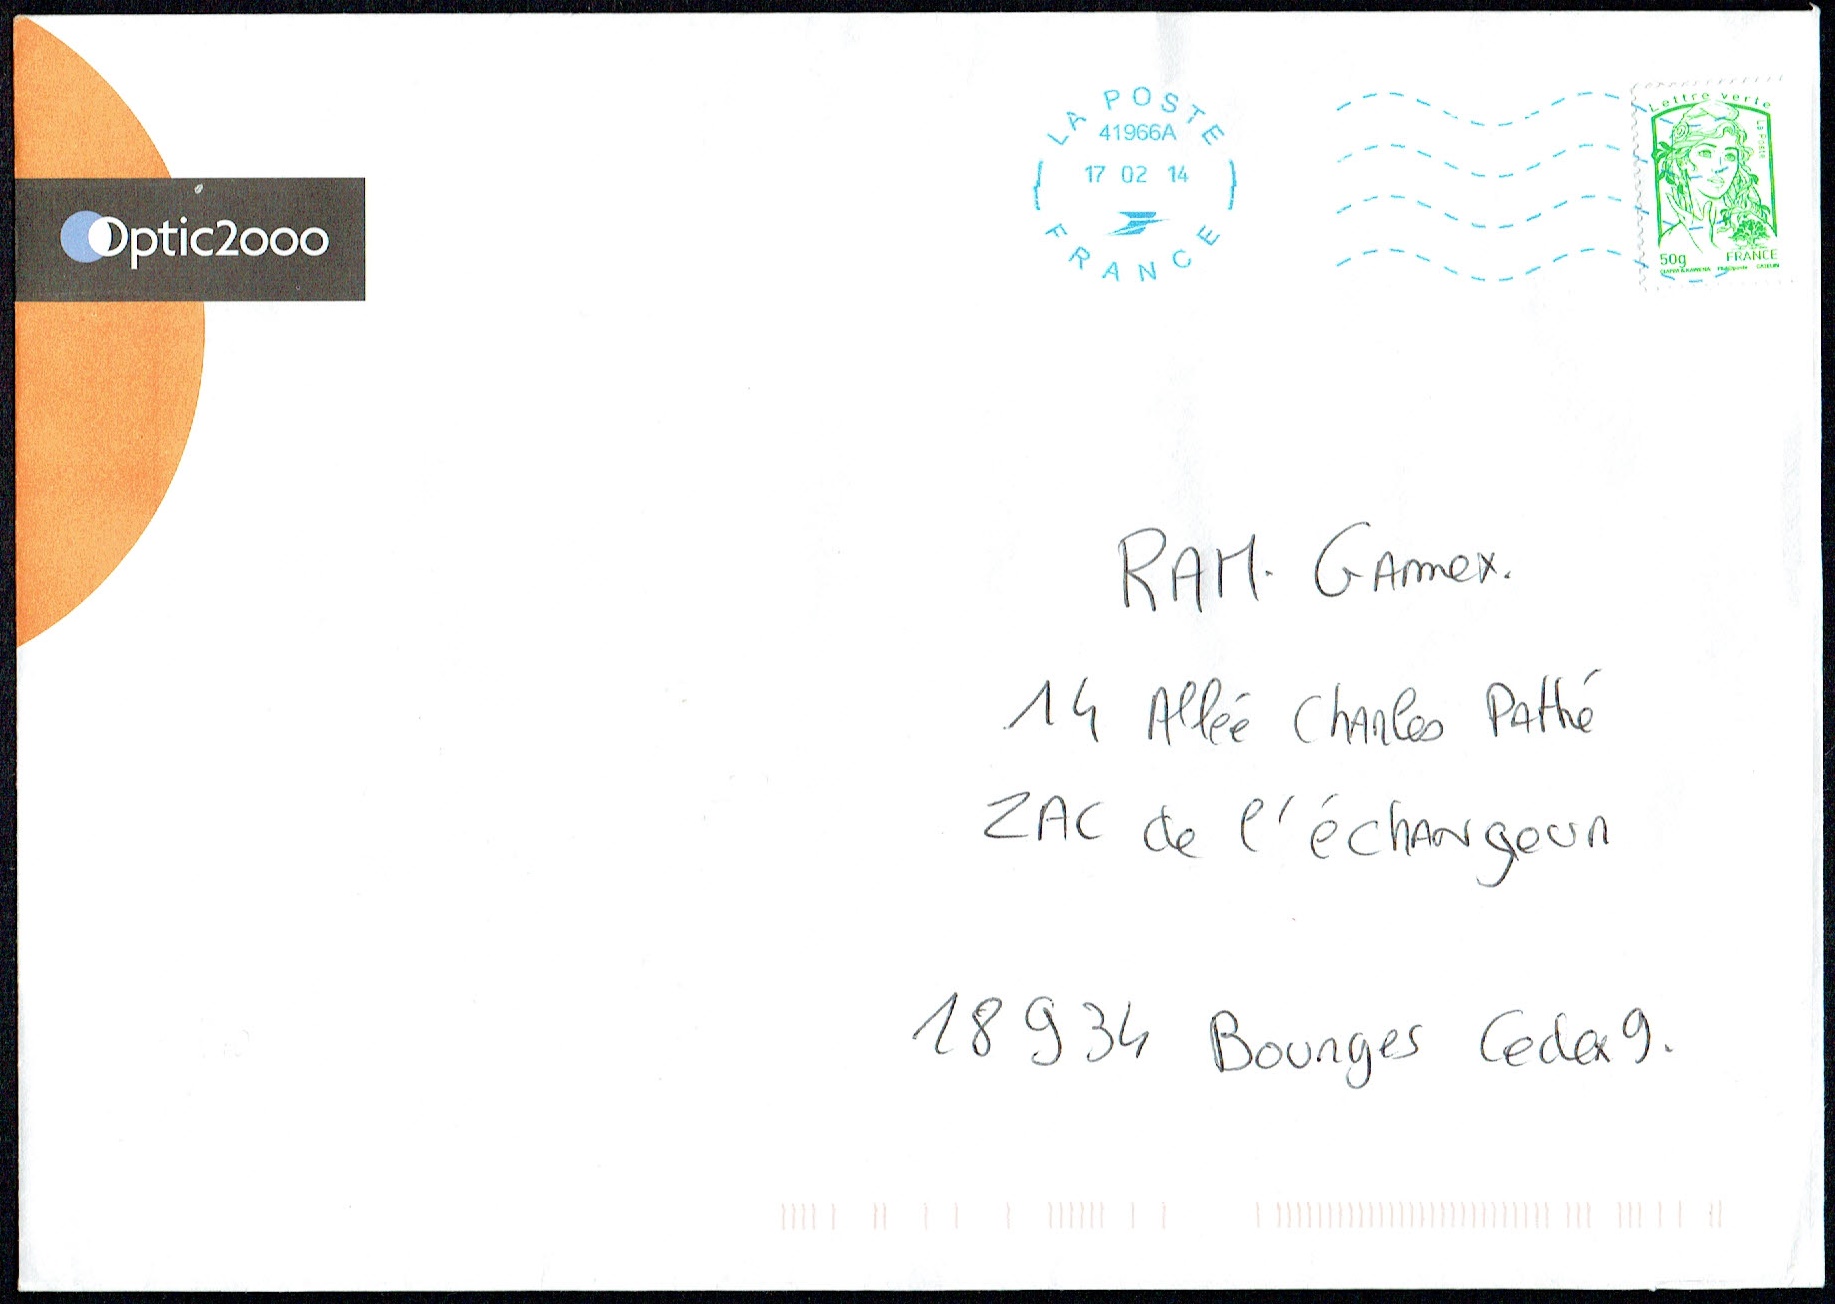 LA POSTE
41966A
17 02 14
FRANCE
Lettre verte
LA POSTE
50g FRANCE
Optic2000
RAM. GAmex.
14 Allée Charles Pathé
ZAC de l'échangeur
18934 Bourges Cedex 9.